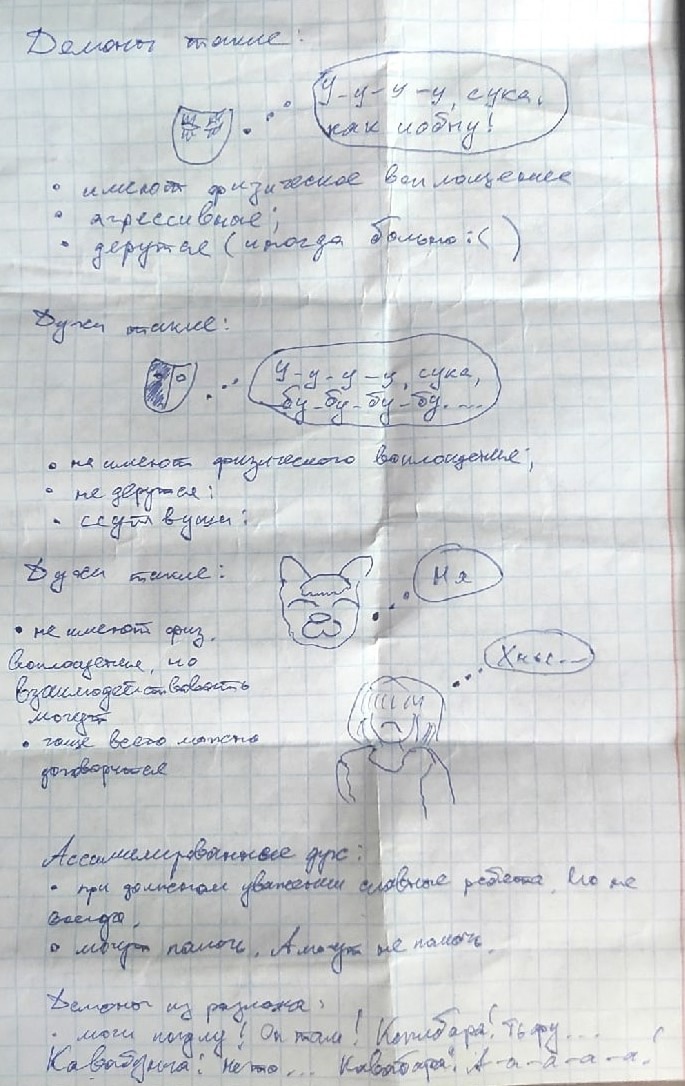 Демоны такие:
У-у-у-у, сука,
как иобну!
• имеют физическое воплощение
• агрессивные;
• дерутся (иногда больно :( )
Духи такие:
У-у-у-у, сука,
бу-бу-бу-бу....
• не имеют физического воплощения;
• не дерутся;
• ссут в уши:
Духи такие:
Ня
• не имеют физ.
воплощения, но
взаимодействовать
могут
Хнык...
• чаще всего можно
договорится
Ассимилированные духи:
• при должном уважении славные ребята. Но не
всегда.
• могут помочь. А могут не помочь.
Демоны из разлома:
• моги Он там! Капибара! Тьфу...
Кавабунга! Не то... Кавабара! А-а-а-а-а!